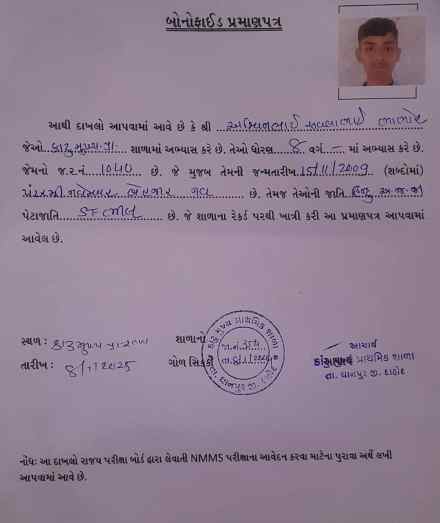 બોનોફાઈડ પ્રમાણપત્ર
આથી દાખલો આપવામાં આવે છે કે શ્રી
જેઓ કાટુ મુખ્ય પ્રા. શાળામાં અભ્યાસ કરે છે. તેઓ ધોરણ 8 વર્ગ – માં અભ્યાસ કરે છે.
જેમનો જ.ર.નં. 1040 છે. જે મુજબ તેમની જન્મતારીખ 15/11/2009 (શબ્દોમાં)
પંદરમી નવેમ્બર બેહજાર નવ છે. તેમજ તેઓની જાતિ હિન્દુ અ.જ.જા
પેટાજાતિ છે. જે શાળાના રેકર્ડ પરથી ખાત્રી કરી આ પ્રમાણપત્ર આપવામાં
આવેલ છે.
સ્થળ : કાટુ મુખ્ય પ્રા.શાળા
તારીખ : 8/1/2025
શાળાનો
ગોળ સિક્કો
મુખ્ય પ્રાથમિક શાળા
જા.નં.
તા. 8/1/2025
તા. ધાનપુર જી. દાહોદ
આચાર્ય
કાટુ મુખ્ય પ્રાથમિક શાળા
તા. ધાનપુર જી. દાહોદ
નોંધઃ આ દાખલો રાજ્ય પરીક્ષા બોર્ડ દ્વારા લેવાતી NMMS પરીક્ષાના આવેદન કરવા માટેના પુરાવા અર્થે લખી
આપવામાં આવે છે.